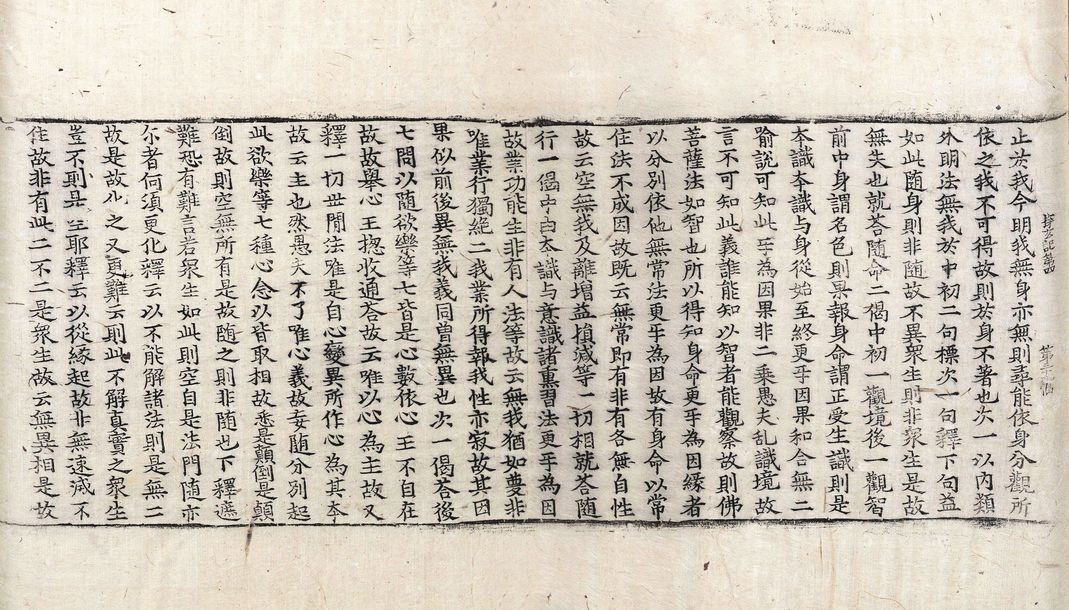 止法我今明我無身亦無則尋能依身分觀所
依之我不可得故則於身不著也次一以內類
外明法無我於中初二句標次一句釋下句益
如此随身則非随故不異衆生則非衆生是故
無失也就荅随命二偈中初一觀境後一觀智
前中身謂名色則果報身命謂正受生識則是
本識本識与身從始至終更㸦因果和合無二
喻說可知此㸦為因果非二乘愚夫乱識境故
言不可知此義誰能知以智者能觀察故則佛
菩薩法如智也所以得知身命更㸦為因緣者
以分別依他無常法更㸦為因故有身命以常
住法不成因故既云無常即有非有各無自性
故云空無我及離增益損減等一切相就荅随
行一偈中由本識与意識諸熏習法更㸦為因
故業功能生非有人法等故云無我猶如夢非
唯業行獨絶二我業所得報我性亦寂故其因
果似前後異無我義同曾無異也次一偈荅後
七問以随欲樂等七皆是心數依心王不自在
故故舉心王揔收通荅故云唯以心為主故又
釋一切世間法唯是自心變異所作心為其本
故云主也然愚夫不了唯心義故妄随分別起
此欲樂等七種心念以皆取相故悉是顛倒是顛
倒故則空無所有是故随之則非随也下釋遮
難恐有難言若衆生如此則空自是法門随亦
尒者何須更化釋云以不能解諸法則是無二
故是故化之又更難云則此不解真實之衆生
豈不則是生耶釋云以從緣起故非無速滅不
住故非有此二不二是衆生故云無異相是故